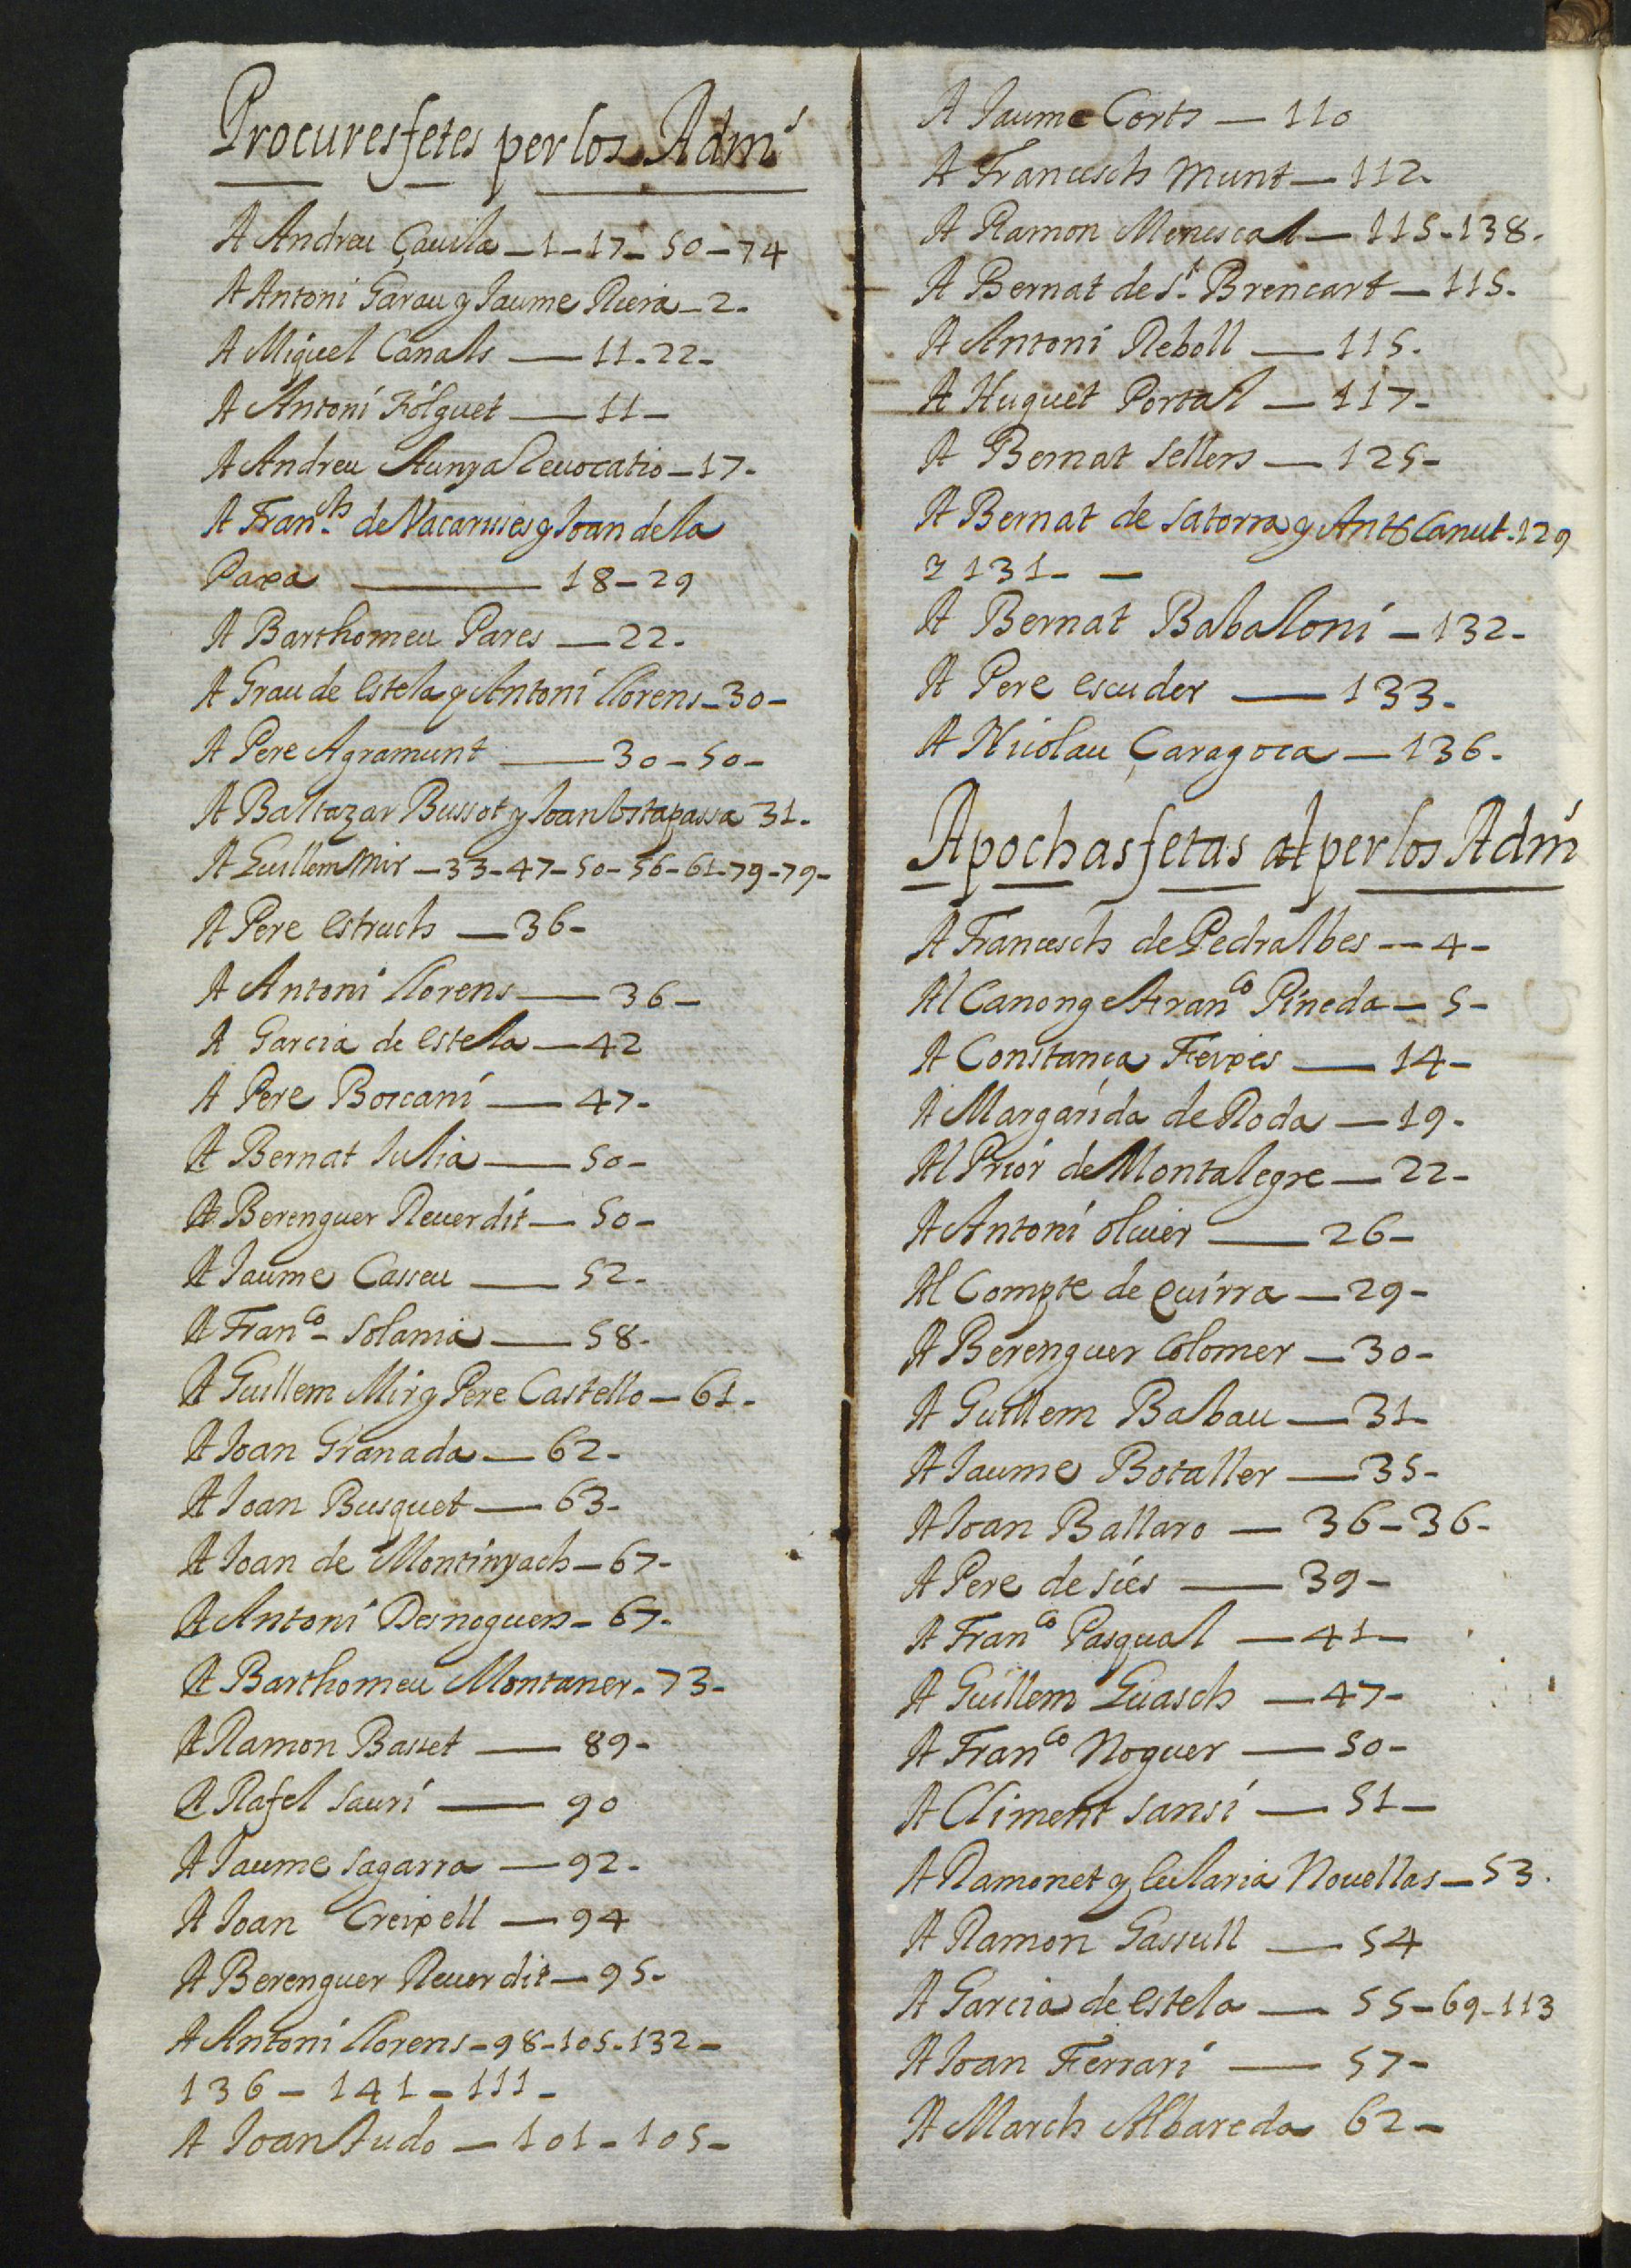 Procures fetes per los Adm.s
A Andreu Çavila - 1 - 17 - 50 - 74
A Antoni Garau y Jaume Riera - 2 -
A Miquel Canals - 11 - 22 -
A Antoni Fólguet - 11 -
A Andreu Revocatio - 17 -
A Fran.ch de Vacarisses y Joan de la
Paxa - 18 - 29
A Barthomeu Pares - 22 -
A Grau de Estela y Antoni Llorens - 30 -
A Pere Agramunt - 30 - 50 -
A Baltazar Bussot y Joan Ostapassa 31 -
A Guillem Mir - 33 - 47 - 50 - 56 - 61 - 79 - 79 -
A Pere Estruch - 36 -
A Antoni Llorens - 36 -
A Garcia de Estela - 42
A Pere Boscani - 47 -
A Bernat Julia - 50 -
A Berenguer Reverdit - 50 -
A Jaume Casseu - 52 -
A Fran.co Solania - 58 -
A Guillem Mir y Pere Castello - 61 -
A Joan Granada - 62 -
A Joan Busquet - 63 -
A Joan de Montinyach - 67 -
A Antoni Desnoguers - 67 -
A Barthomeu Montaner - 73 -
A Ramon Basset - 89 -
A Rafel Sauri - 90
A Jaume Sagarra - 92 -
A Joan Creixell - 94
A Berenguer Reverdit - 95 -
A Antoni Llorens - 98 - 105 - 132 -
136 - 141 - 111 -
A Joan Tudo - 101 - 105 -
A Jaume Corts - 110
A Francesch Munt - 112 -
A Ramon Menescal - 115 - 138 -
A Bernat de S.t Brencart - 115 -
A Antoni Reboll - 115 -
A Huguet Portal - 117 -
A Bernat Sellers - 125 -
A Bernat de Satorra y Ant.o Canut - 129
2 131 - -
A Bernat Babaloni - 132 -
A Pere Escuder - 133 -
A Nicolau Çaragoca - 136 -
Apochas fetas al per los Adm
A Francesch de Pedralbes - 4 -
Al Canonge Fran.co Pineda - 5 -
A Constança Feixes - 14 -
A Margarida de Roda - 19 -
Al Prior de Montalegre - 22 -
A Antoni Oliver - 26 -
Al Compte de Quirra - 29 -
A Berenguer Colomer - 30 -
A Guillem Babau - 31 -
A Jaume Botaller - 35 -
A Joan Ballaro - 36 - 36 -
A Pere de Sies - 39 -
A Fran.co Pasqual - 41 -
A Guillem Guasch - 47 -
A Fran.co Noguer - 50 -
A Climent Sansi - 51 -
A Ramonet y Eularia Novellas - 53 .
A Ramon Gassull - 54
A Garcia de Estela - 55 - 69 - 113
A Joan Ferrari - 57 -
A March Albareda 62 -